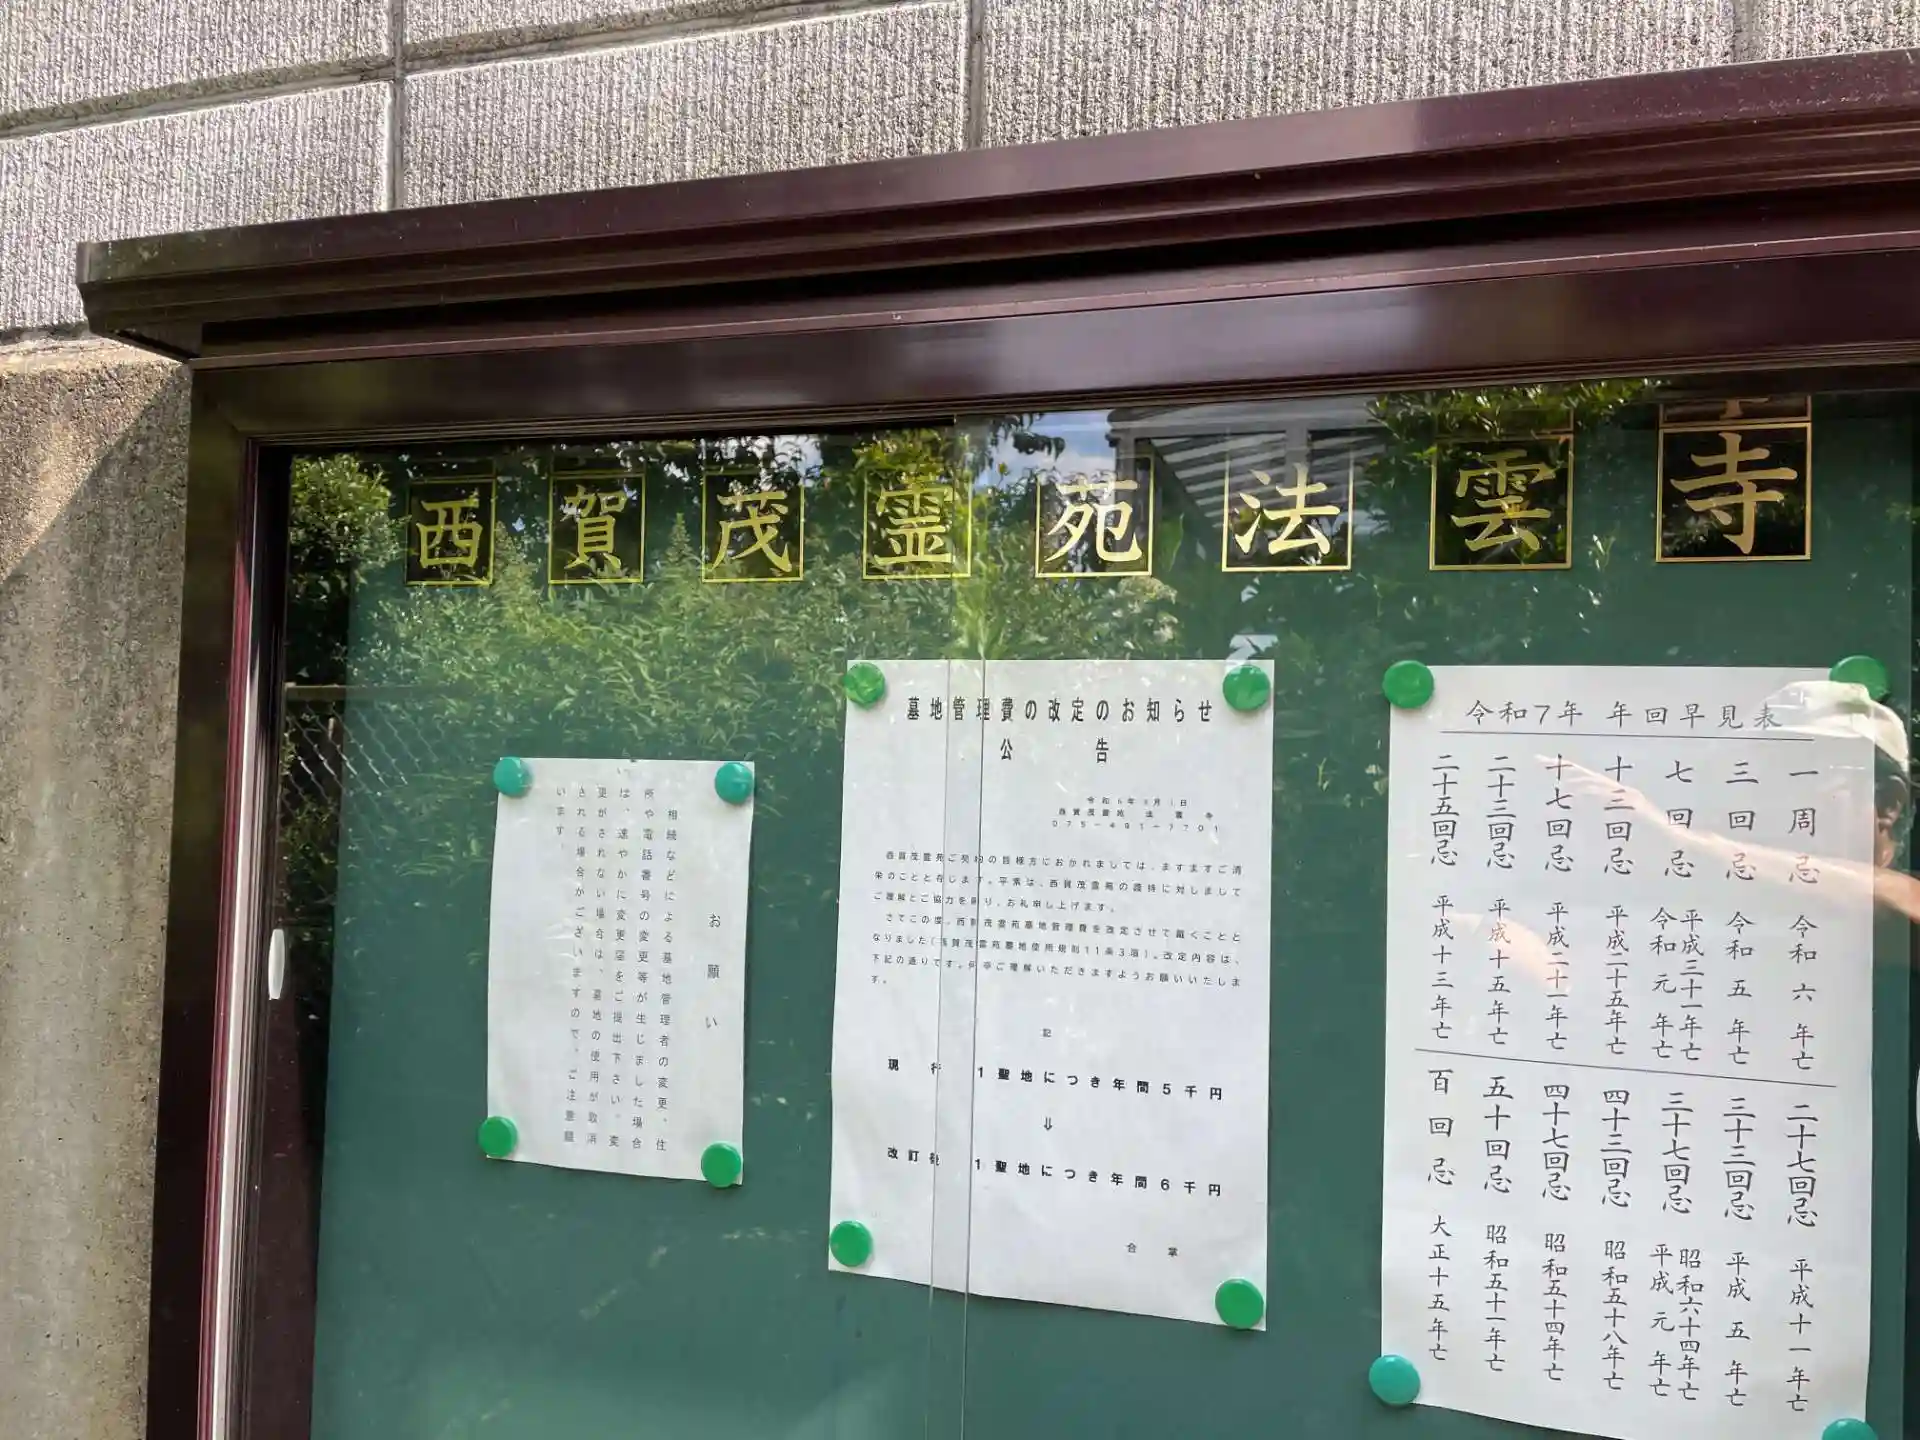 西賀茂霊苑法雲寺
お願い
相続などによる墓地管理者の変更、住
所や電話番号の変更等が生じました場合
は、速やかに変更届をご提出下さい。変
更がされない場合は、墓地の使用が取消
される場合がございますので、ご注意願
います。
墓地管理費の改定のお知らせ
公告
西賀茂霊苑 法雲寺
075-491-7701
西賀茂霊苑ご契約の皆様方におかれましては、ますますご清
栄のことと存じます。平素は、西賀茂霊苑の護持に対しまして
ご理解とご協力を賜り、お礼申し上げます。
さてこの度、西賀茂霊苑墓地管理費を改定させて戴くことと
なりました(西賀茂霊苑墓地使用規則11条3項)。改定内容は、
下記の通りです。何卒ご理解いただきますようお願いいたしま
す。
記
現行 1聖地につき年間5千円
⇩
改訂後 1聖地につき年間6千円
合掌
令和7年 年回早見表
一周忌 令和六年亡
三回忌 令和五年亡
七回忌 平成三十一年亡 令和元年亡
十三回忌 平成二十五年亡
十七回忌 平成二十一年亡
二十三回忌 平成十五年亡
二十五回忌 平成十三年亡
二十七回忌 平成十一年亡
三十三回忌 平成五年亡
三十七回忌 昭和六十四年亡 平成元年亡
四十三回忌 昭和五十八年亡
四十七回忌 昭和五十四年亡
五十回忌 昭和五十一年亡
百回忌 大正十五年亡